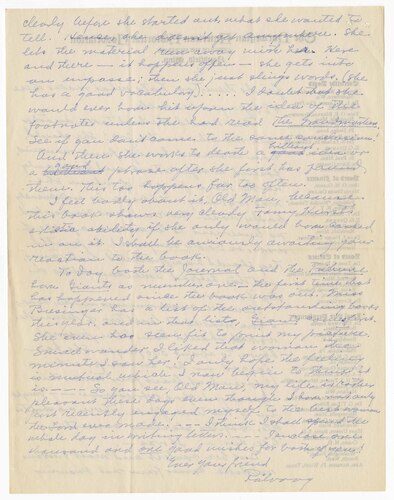 clearly before she started out what she wanted to
tell. Hence she doesn't get anywhere. She
lets the material run away with her. Here
and there — it happens often — she gets into
an impasse; then she just slings words. (She
has a good vocabulary) .... I doubt that she
would ever have hit upon the idea of the
footnotes unless she had read
See if you don't come to the same conclusion!
And then she works to death a brilliant idea or
a good phrase after she first has found
them. This too happens far too often.
I feel badly about it, Old Man, because
this book shows very clearly
ability if she only would have
in on it. I shall be anxiously awaiting your
reaction to the book.
To Day both the Journal and the
have Giants as number one — the first time that
has happened since the book was out. Miss
Bresinger has a list of the outstanding books
this year, and
She even has seen fit to print my picture.
Small wonder I liked that woman the
minute I saw her. I only hope the feeling
is mutual which I now begin to think it
is. — So you see, Old Man, my life is rather
pleasant these days even though I have only
just recently engaged myself to the best woman
the Lord ever made. — I think I shall spend the
whole day in writing letters. — I enclose one
thousand and one good wishes for both of you!
Ever your friend